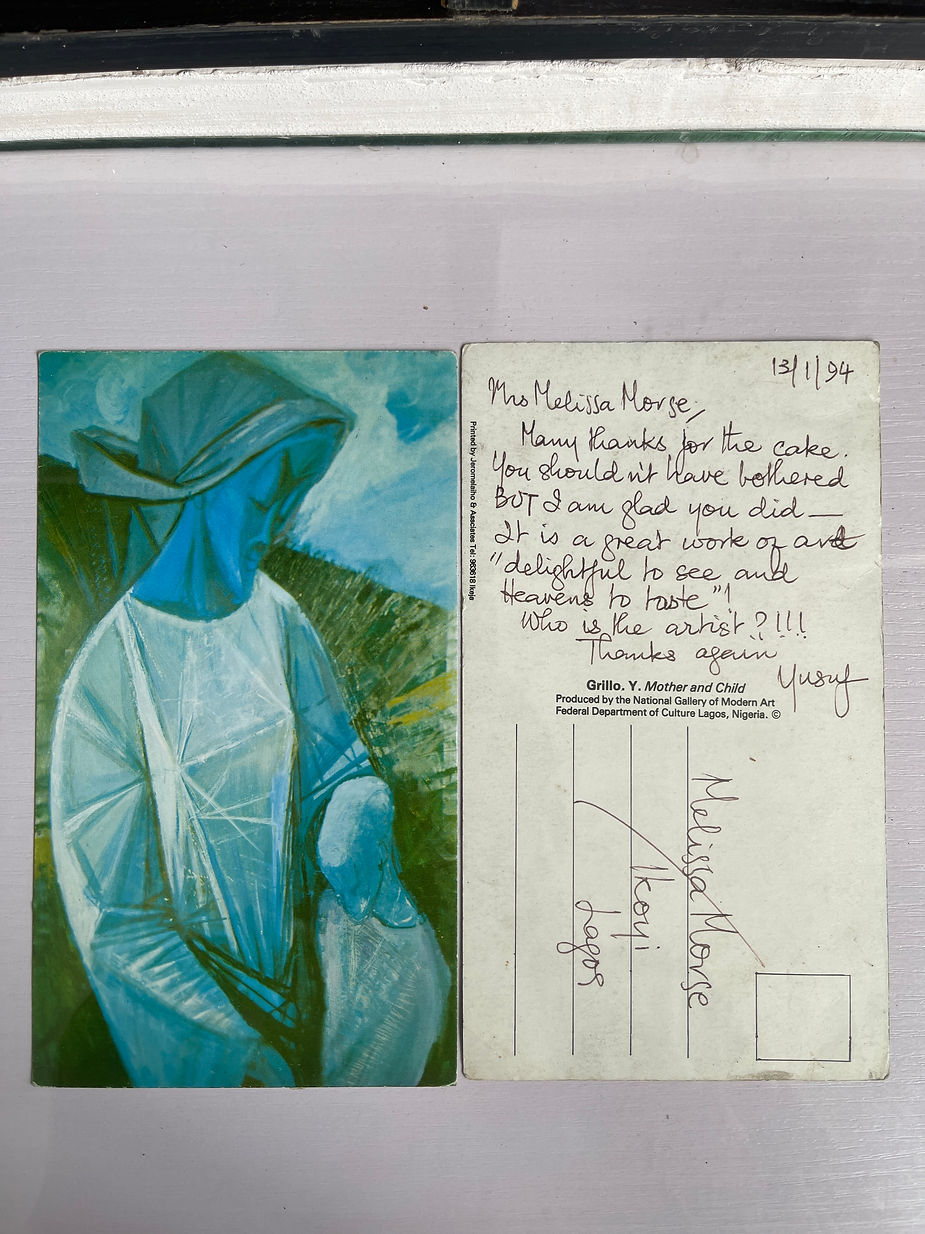 13/1/94
Mrs Melissa Morse,
Many thanks for the cake.
You shouldn't have bothered
BUT I am glad you did—
It is a great work of art
"delightful to see and
Heavens to taste"!
Who is the artist?!!!
Thanks again
Yusuf
Grillo. Y. Mother and Child
Produced by the National Gallery of Modern Art
Federal Department of Culture Lagos, Nigeria. ©
Printed by Jeromelaiho & Assciates Tel: 963618 Ikeja
Melissa Morse
Ikoyi
Lagos